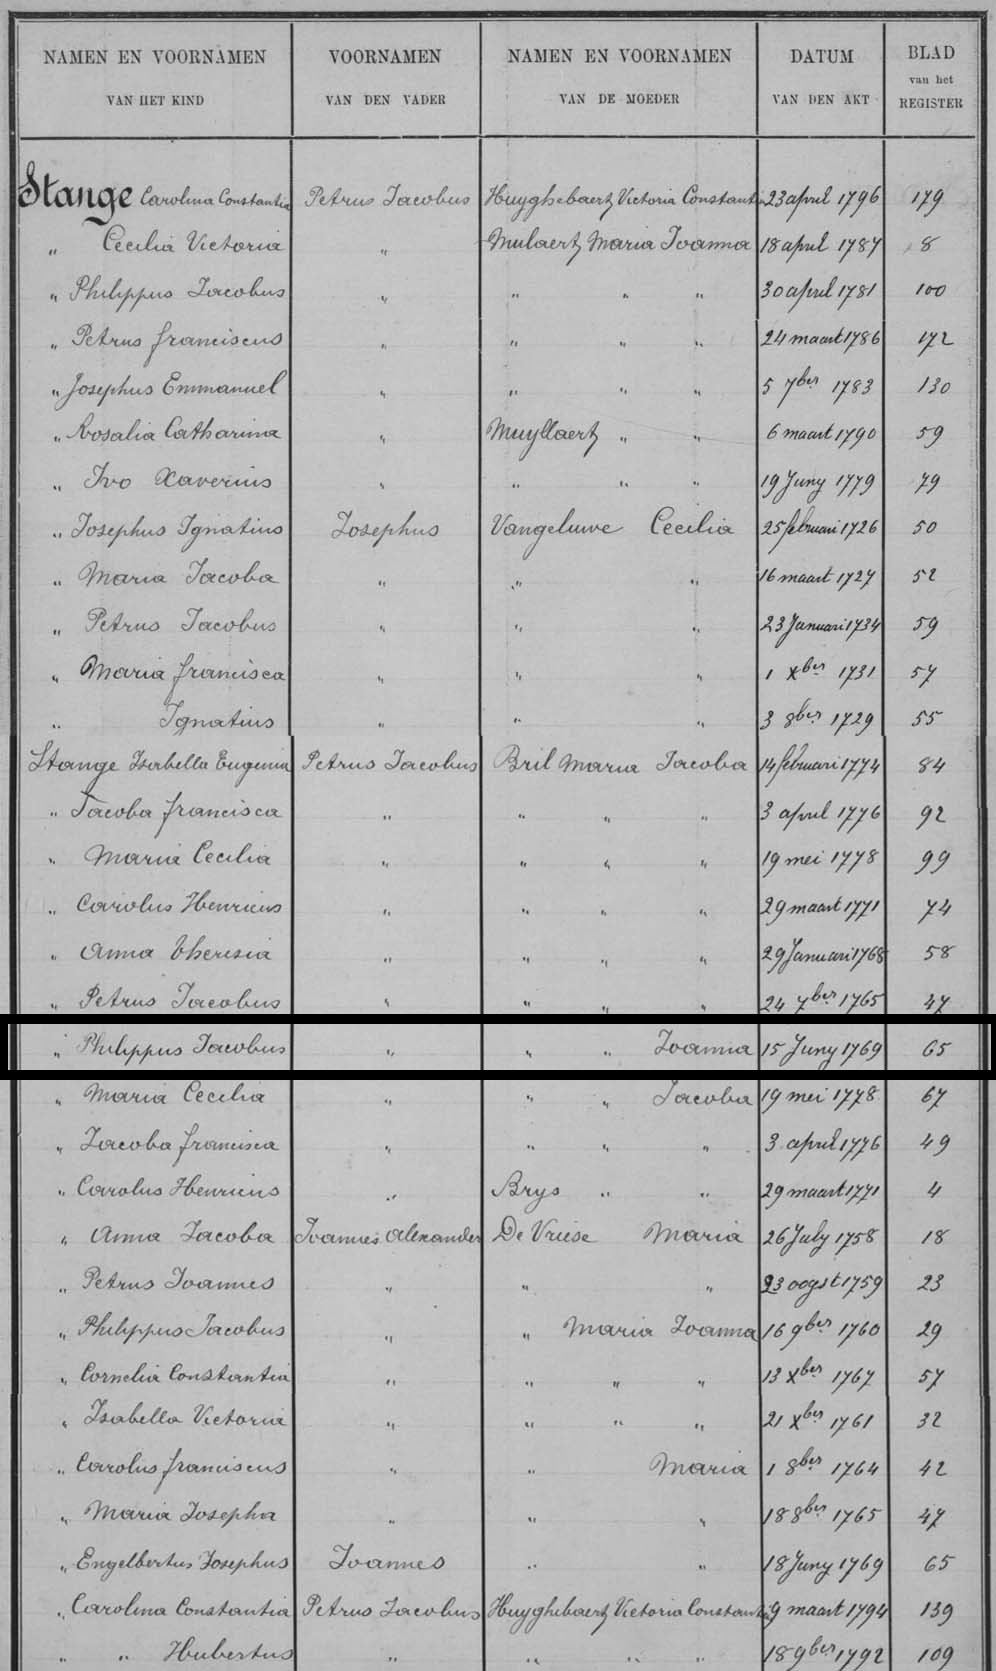 NAMEN EN VOORNAMEN VAN HET KIND | VOORNAMEN VAN DEN VADER | NAMEN EN VOORNAMEN VAN DE MOEDER | DATUM VAN DEN AKT | BLAD van het REGISTER
Stange Carolina Constantia Petrus Jacobus Huyghebaert Victoria Constantia 23 april 1796 179
" Cecilia Victoria " Mulaert Maria Joanna 18 april 1787 8
" Philippus Jacobus " " " " 30 april 1781 100
" Petrus franciscus " " " " 24 maart 1786 172
" Josephus Emmanuel " " " " 5 7ber 1783 130
" Rosalia Catharina " Muyllaert " " 6 maart 1790 59
" Ivo Xaverius " " " " 19 Juny 1779 79
" Josephus Ignatius Josephus Vangeluwe Cecilia 25 februari 1726 50
" Maria Jacoba " " " 16 maart 1727 52
" Petrus Jacobus " " " 23 Januari 1734 59
" Maria francisca " " " 1 Xber 1731 57
" Ignatius " " " 3 8ber 1729 55
Stange Isabella Eugenia Petrus Jacobus Bril Maria Jacoba 14 februari 1774 84
" Jacoba francisca " " " " 3 april 1776 92
" Maria Cecilia " " " " 19 mei 1778 99
" Carolus Henricus " " " " 29 maart 1771 74
" Anna theresia " " " " 29 Januari 1768 58
" Petrus Jacobus " " " " 24 7ber 1765 47
" Philippus Jacobus " " " Joanna 15 Juny 1769 65
" Maria Cecilia " " " Jacoba 19 mei 1778 67
" Jacoba francisca " " " " 3 april 1776 49
" Carolus Henricus " Brys " " 29 maart 1771 4
" Anna Jacoba Joannes Alexander De Vriese Maria 26 July 1758 18
" Petrus Joannes " " " 23 oogst 1759 23
" Philippus Jacobus " " Maria Joanna 16 9ber 1760 29
" Cornelia Constantia " " " " 13 Xber 1767 57
" Isabella Victoria " " " " 21 Xber 1761 32
" Carolus franciscus " " Maria 1 8ber 1764 42
" Maria Josepha " " " 18 8ber 1765 47
" Engelbertus Josephus Joannes " " 18 Juny 1769 65
" Carolina Constantia Petrus Jacobus Huyghebaert Victoria Constantia 9 maart 1794 139
" " Hubertus " " " " 18 9ber 1792 109